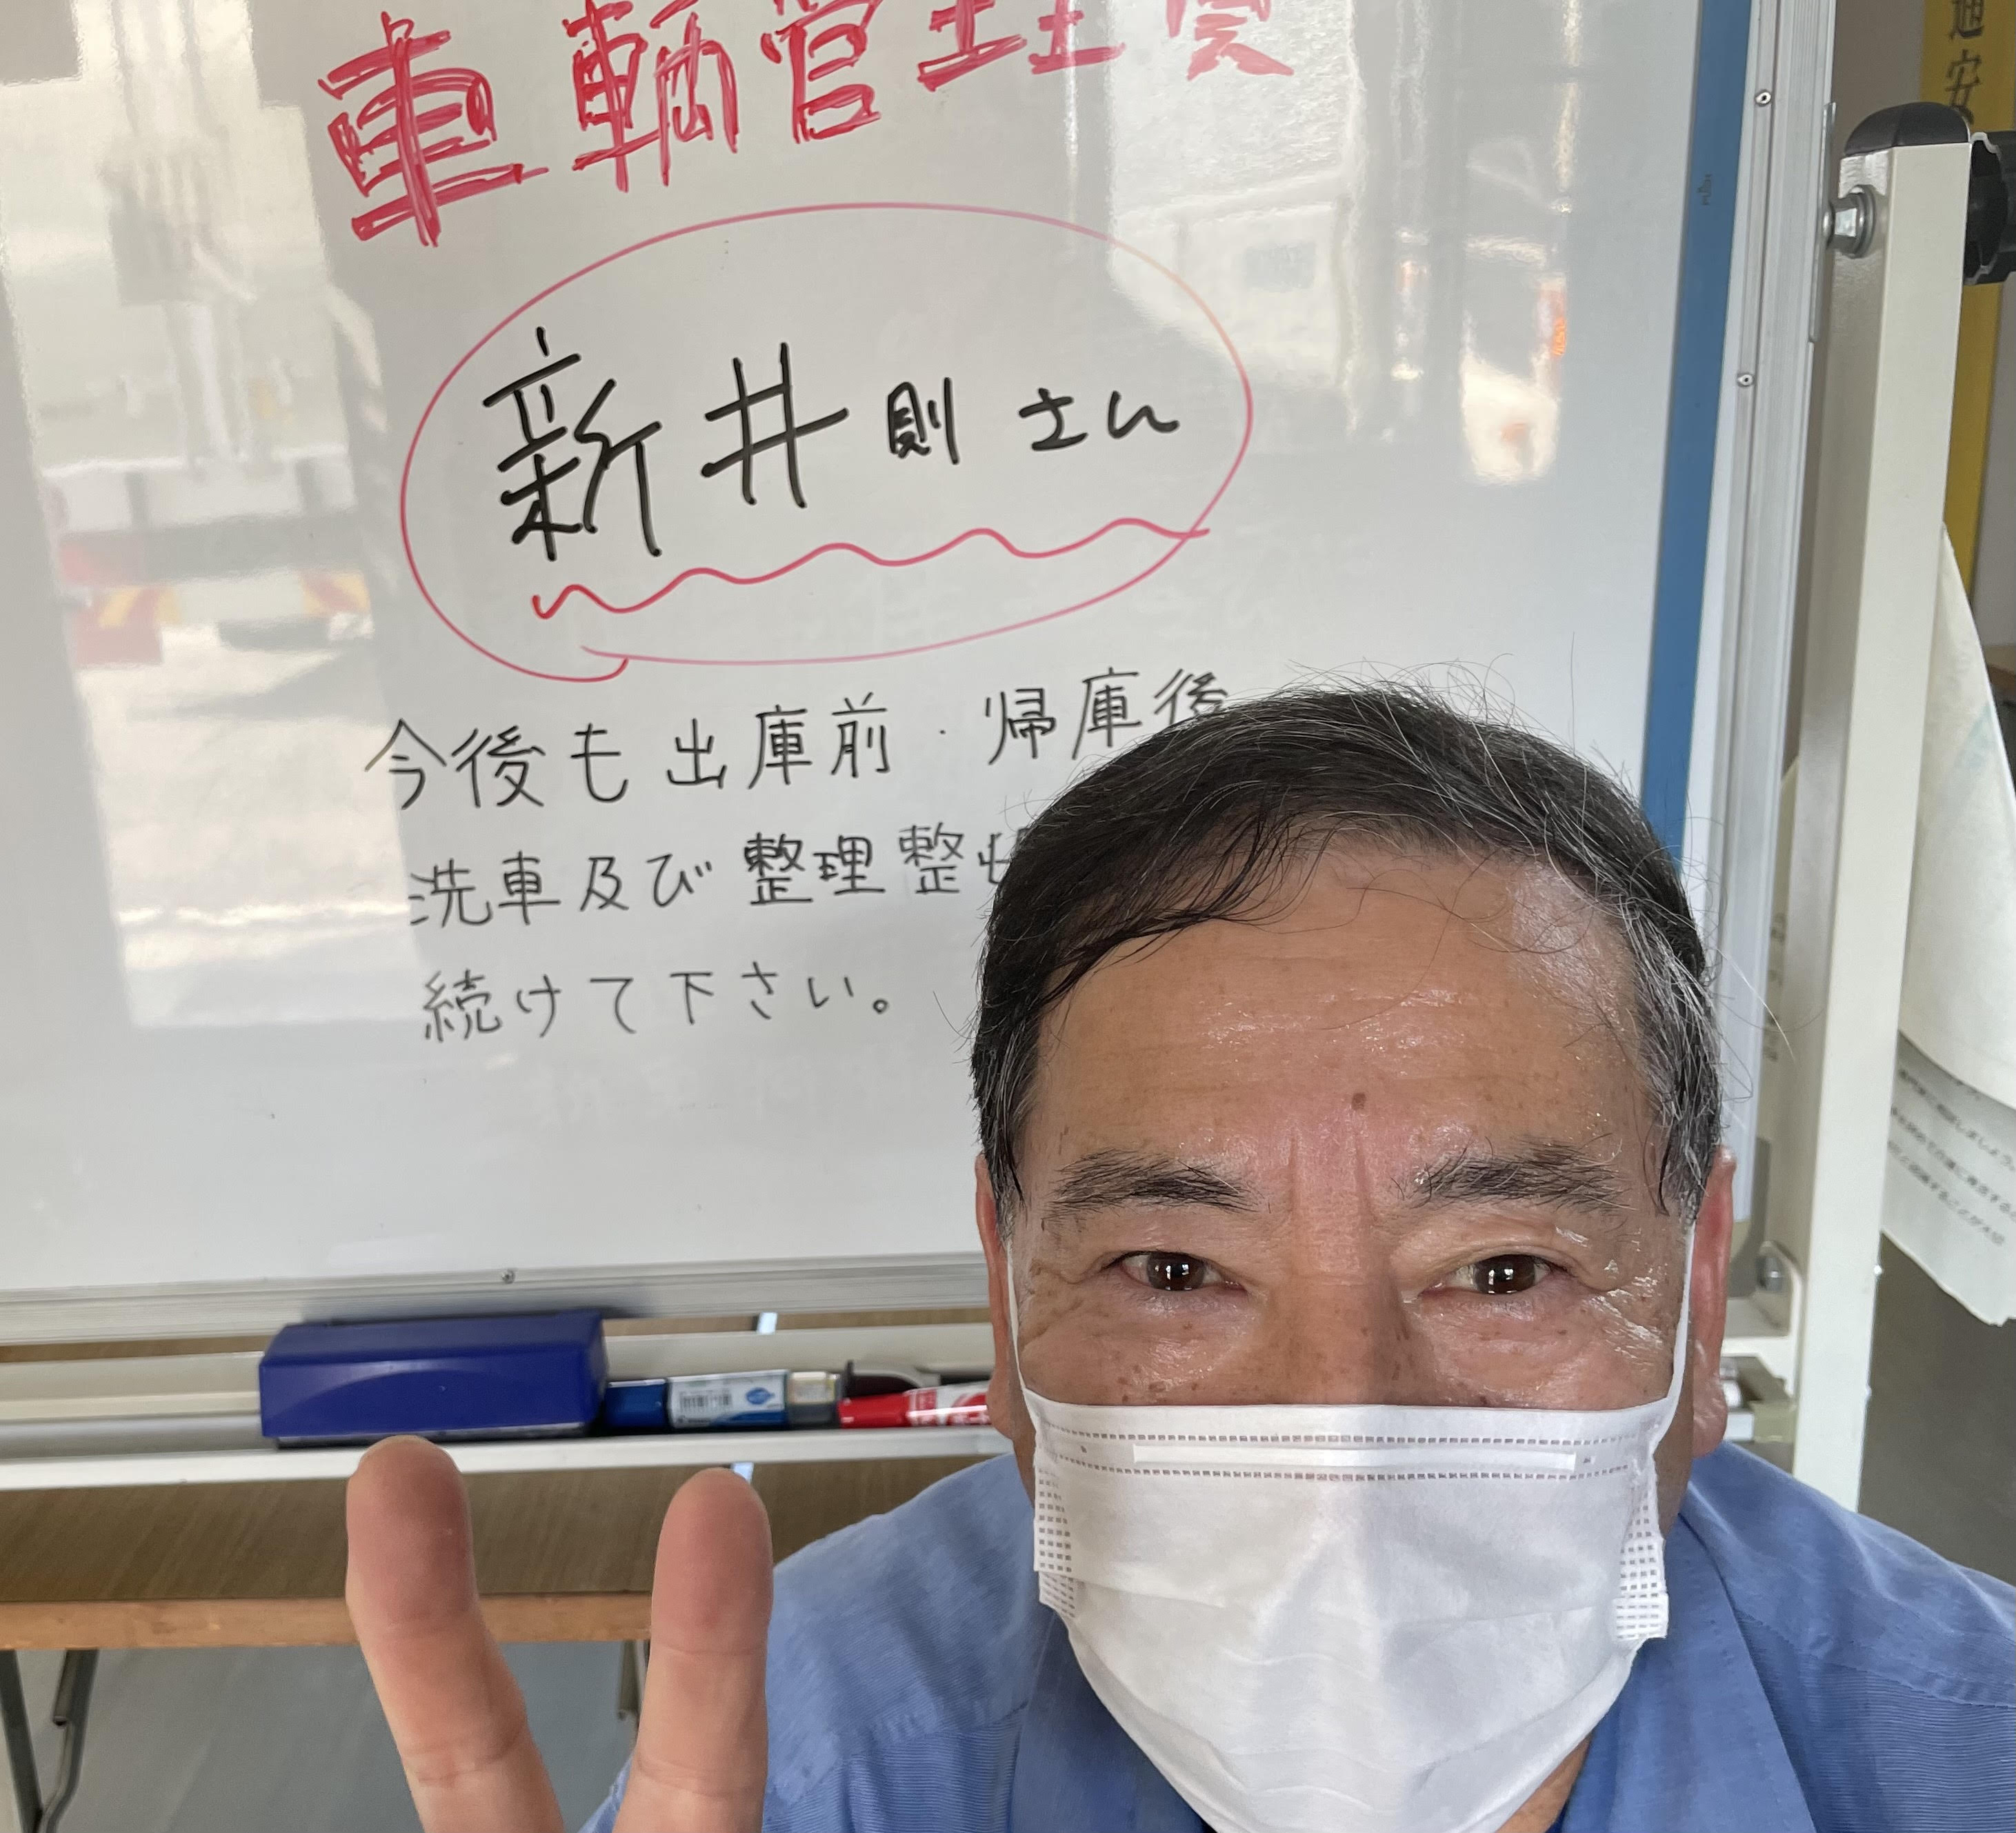 車輌管理賞
新井則さん
今後も出庫前・帰庫後
洗車及び整理整
続けて下さい。
通安